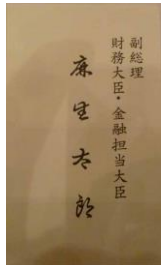 副総理
財務大臣・金融担当大臣
麻生太郎